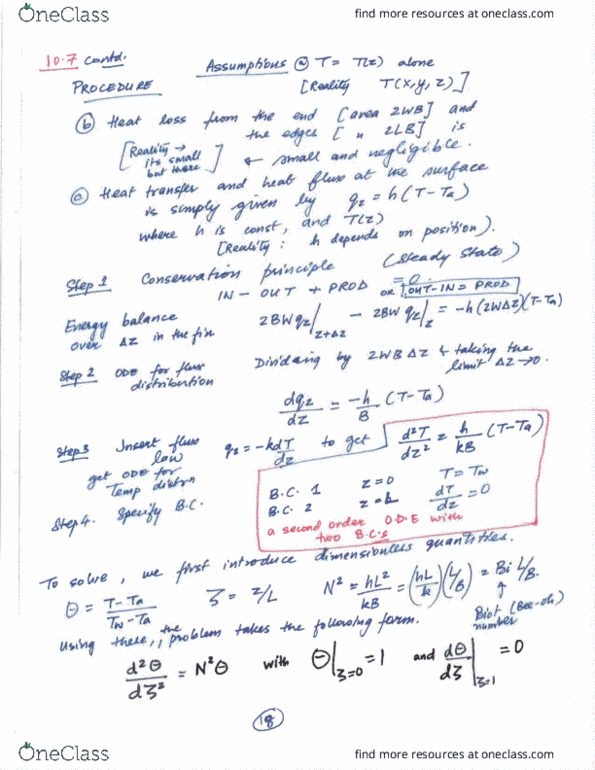 OneClass
find more resources at oneclass.com
10.7 contd.
Assumptions ⓐ T = T(z) alone
PROCEDURE
[Reality T(x,y,z)]
ⓑ Heat loss from the end [area 2WB] and
the edges [ " 2LB] is
[Reality → its small but there] ← small and negligible.
ⓒ Heat transfer and heat flux at the surface
is simply given by q_z = h(T-Ta)
where h is const, and T(z)
[Reality: h depends on position).
Step 1 Conservation principle (Steady State)
IN - OUT + PROD = 0 or OUT-IN = PROD
Energy balance over ΔZ in the fin 2BW q_z|_{z+Δz} - 2BW q_z|_z = -h(2WΔZ)(T-Ta)
Step 2 ODE for flux distribution Dividing by 2WBΔZ & taking the limit ΔZ→0.
dq_z/dz = -h/B (T-Ta)
Step 3 Insert flux law q_z = -k dT/dz to get d²T/dz² = h/kB (T-Ta)
get ODE for Temp distrn
B.C. 1 z=0 T = Tw
B.C. 2 z=L dT/dz = 0
Step 4. Specify B.C.
a second order O.D.E with two B.C.s
To solve, we first introduce dimensionless quantities.
Θ = T-Ta/Tw-Ta ζ = z/L N² = hL²/kB = (hL/k)(L/B) = Bi L/B.
Biot (Bee-oh) number
Using these, the problem takes the following form.
d²Θ/dζ² = N²Θ with Θ|_{ζ=0} = 1 and dΘ/dζ|_{ζ=1} = 0
18
OneClass
find more resources at oneclass.com